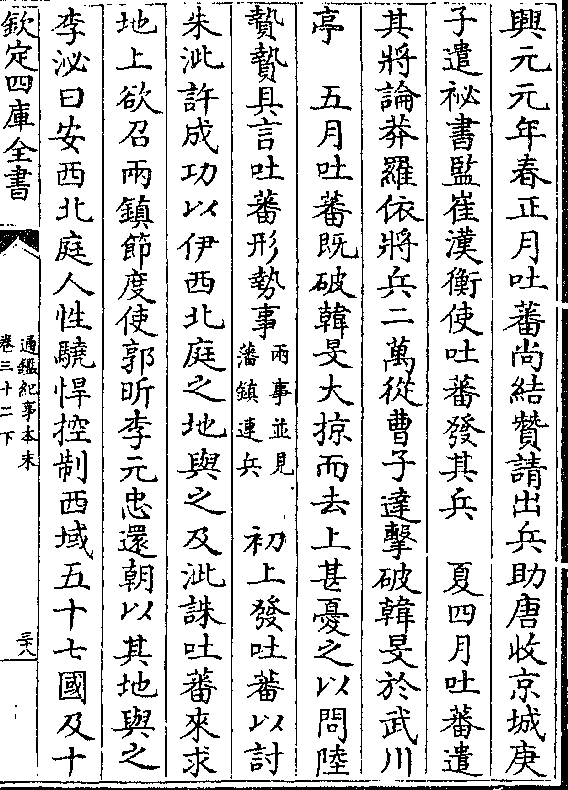 興元元年春正月吐蕃尚結贊請出兵助唐收京城庚
子遣祕書監崔漢衡使吐蕃發其兵　夏四月吐蕃遣
其將論莽羅依將兵二萬從曹子達擊破韓旻於武川
亭　五月吐蕃既破韓旻大掠而去上甚憂之以問陸
贄贄具言吐蕃形勢事兩事並見藩鎮連兵　初上發吐蕃以討
朱泚許成功以伊西北庭之地與之及泚誅吐蕃來求
地上欲召兩鎮節度使郭昕李元忠還朝以其地與之
李泌曰安西北庭人性驍悍控制西域五十七國及十
欽定四庫全書
通鑑紀事本末
卷三十二下
三十八